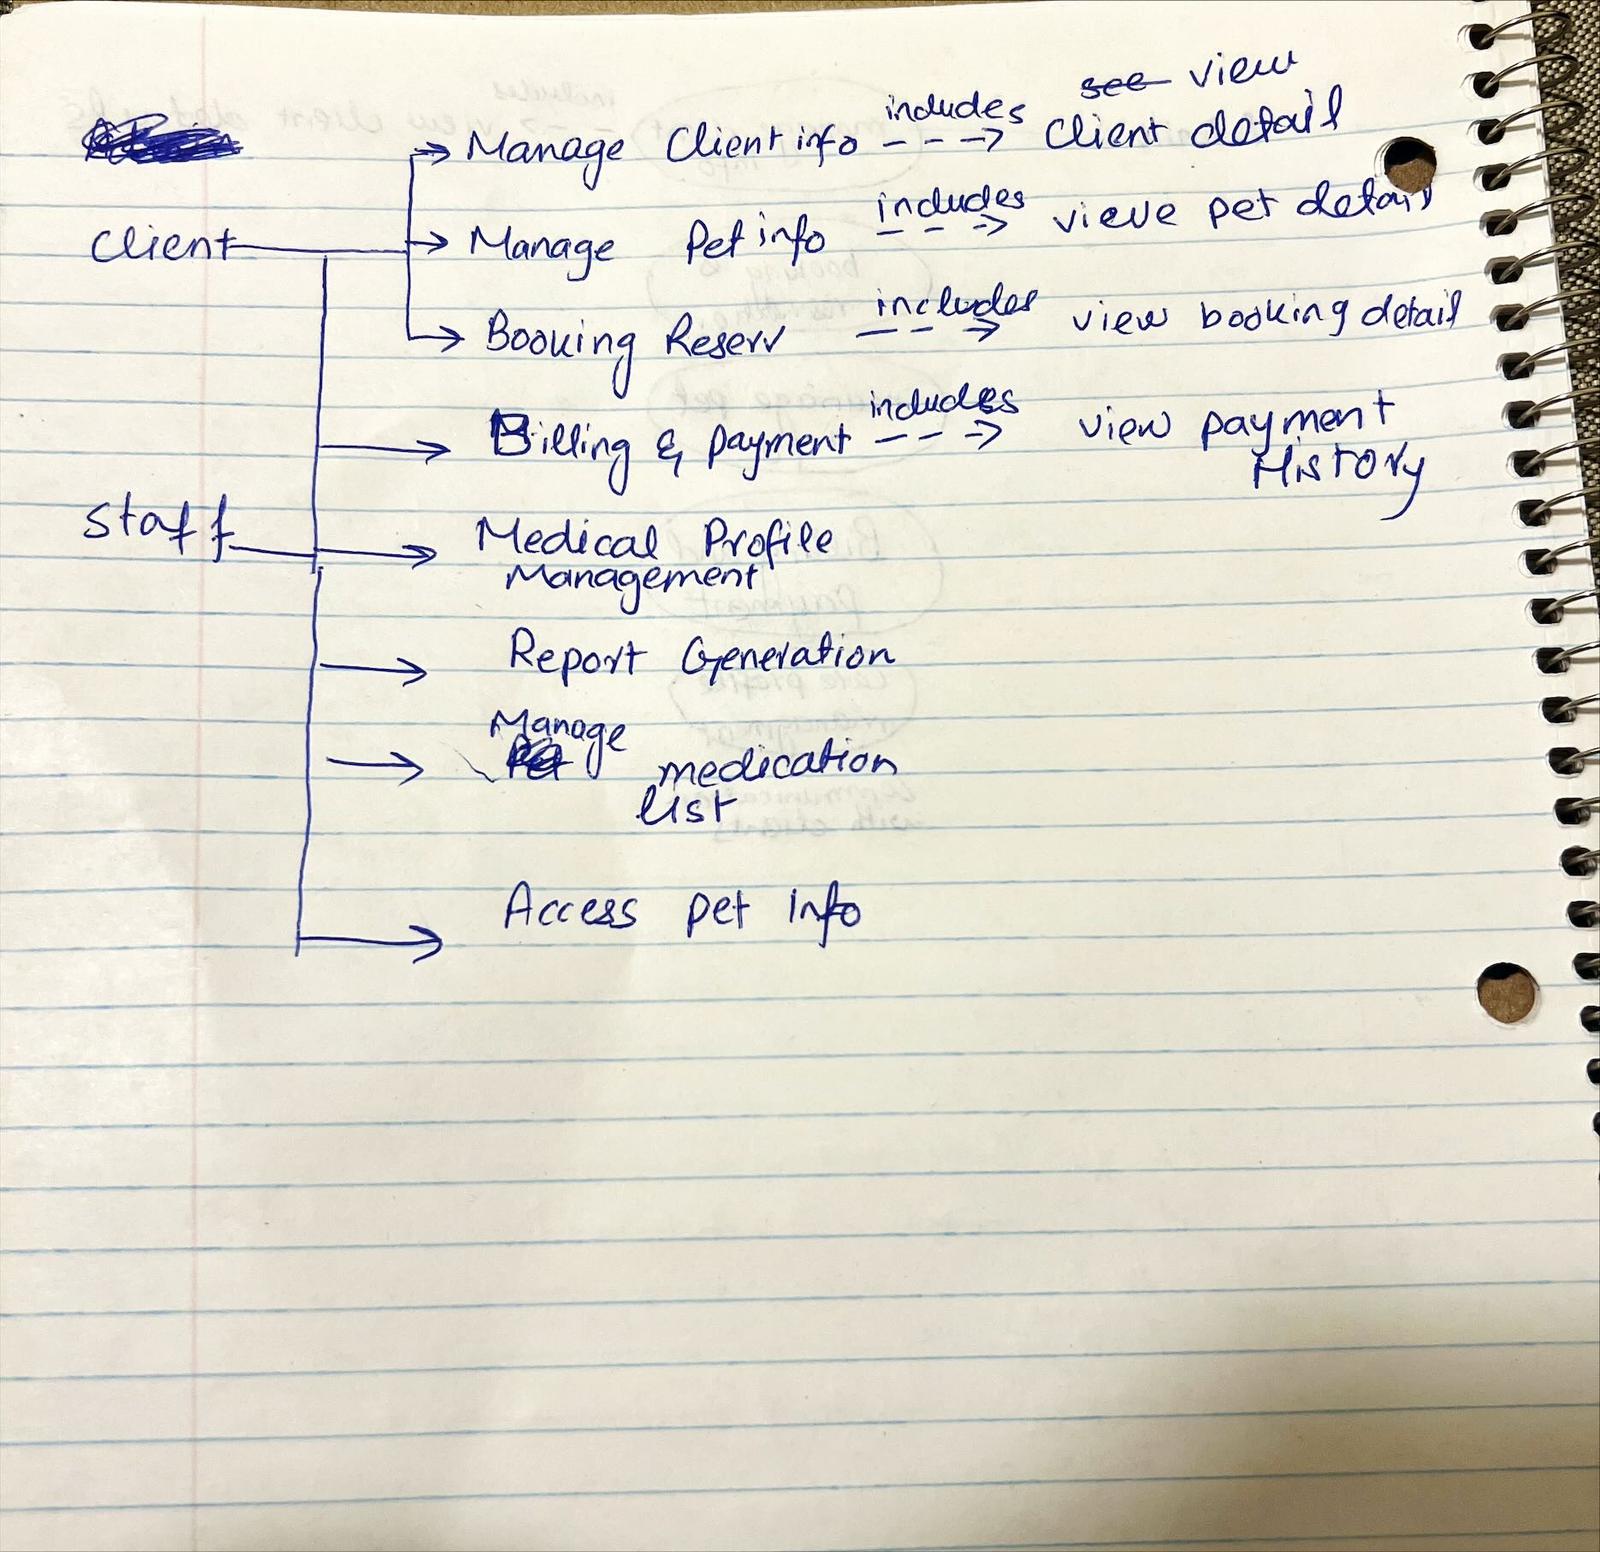 view
Manage Client info includes Client detail
Client
Manage Pet info includes view pet detail
Booking Reserv includes view booking detail
Billing & payment includes view payment
History
Staff
Medical Profile
Management
Report Generation
Manage
medication
List
Access pet Info